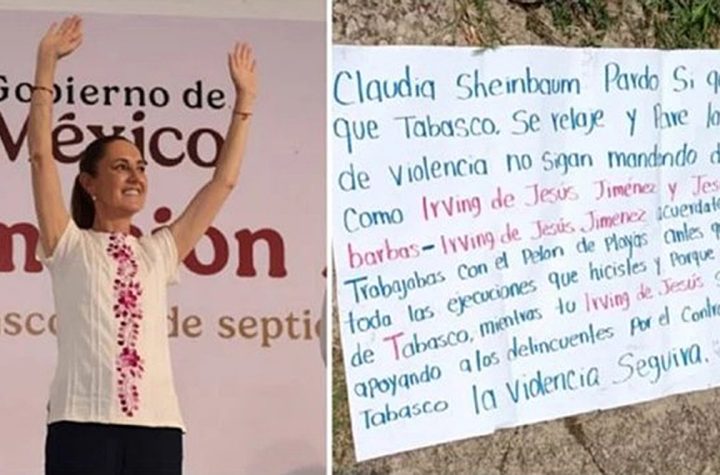 Gobierno de
México
Claudia Sheinbaum Pardo Si
que Tabasco. Se relaje y Pare
de violencia no sigan mandando
Como Irving de Jesús Jiménez y
barbas- Irving de Jesús Jimenez acuerdate
Trabajabas con el Pelon de Playas antes
toda las ejecuciones que hicistes y Porque
de Tabasco, mientras tu Irving de Jesús
apoyando a los delincuentes Por el
Tabasco la violencia Seguira.